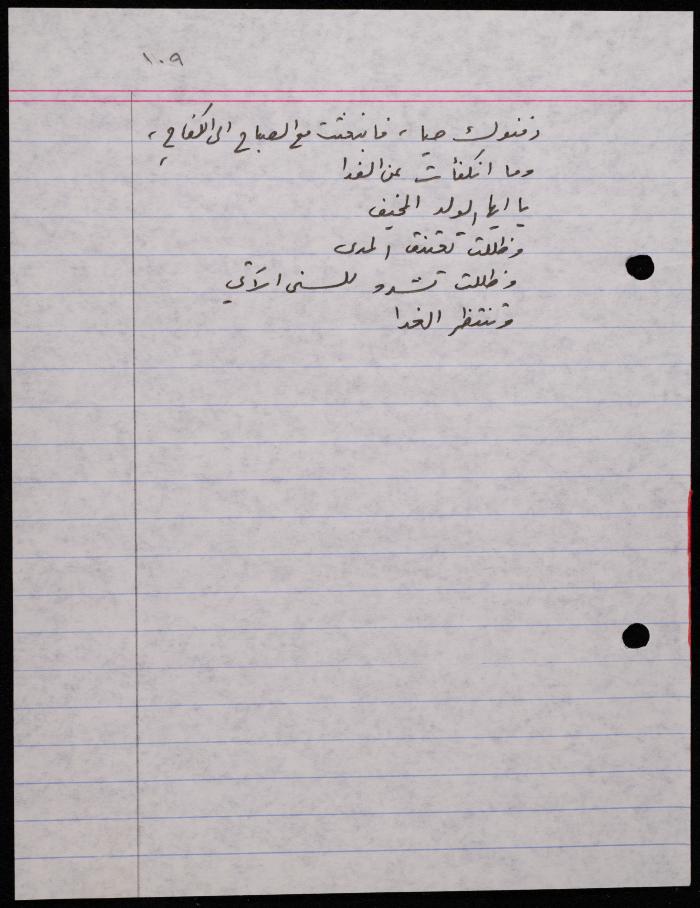 ١٠٩
دفنوك حيا، فانبعثت مع الصباح الى الكفاح،
وما انكفأت عن الفدا
يا ايها الولد المخيف
وظللت تعتنق المدى
وظللت تشدو للسنى الآتي
وتنتظر الغدا